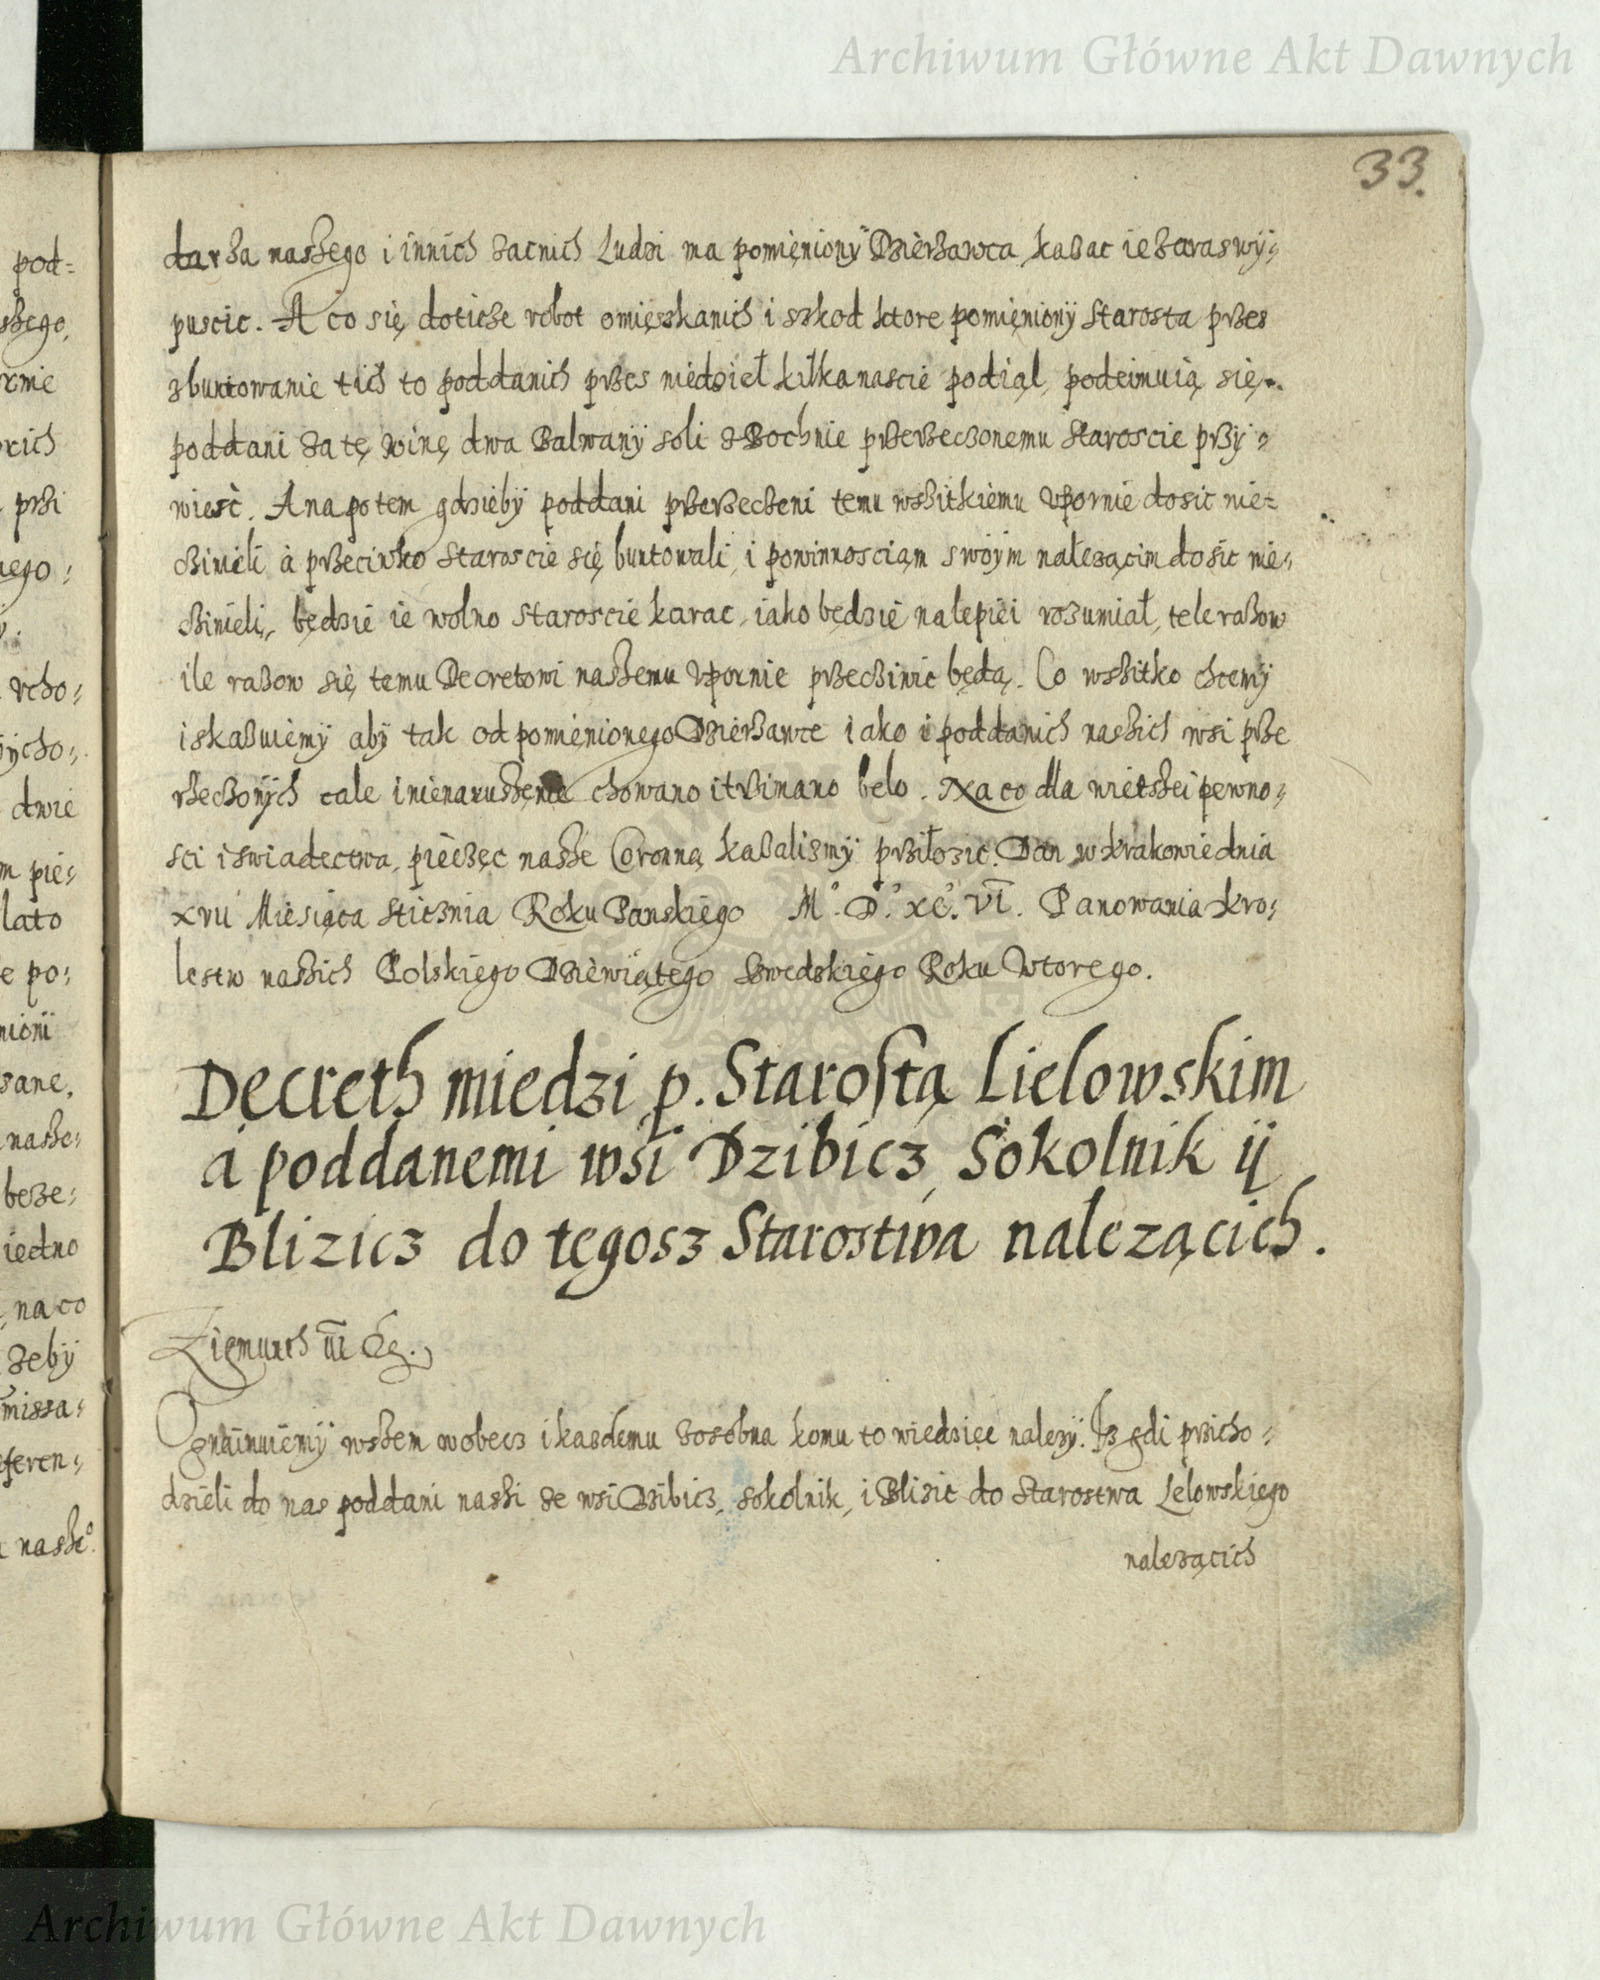 Archiwum Główne Akt Dawnych
33.
darza naszego i innich zacnich Ludzi ma pomięniony Dzierzawca kazac ie zaraswÿ=
puscic. A co się doticze robot omięszkanich i szkod ktore pomięnionÿ Starosta przes
zbuntowanie tich to poddanich przes niedziel kilkanascie podiąl, podeimuią się
poddani za tę winę dwa Balwanÿ soli z Bochnie przerzeczonemu Staroscie przÿ=
wiesc. A napotem gdziebÿ poddani przerzeczeni temu wszitkiemu Vpornie dosic nie=
czinieli à przeciwko Staroscie się buntowali, i powinnosciąm swoÿm nalezącim dosic nie=
czinieli, będzie ie wolno Staroscie karac, iako będzie nalepiei rozumiał, tele razow
ile razow się temu Decretowi naszemu Vpornie przeciwic będą. Co wszitko chcemÿ
i skazuiemÿ abÿ tak od pomięnionego Dzierzawce iako i poddanich naszich wsi prze
rzeczonÿch cale i nienaruszenie chowano i trzimano belo. Na co dla wietszei pewno=
sci i swiadectwa, pieczęc nasze Coronną kazalismÿ prziłozic. Dan w Krakowie dnia
xvii Miesiąca Sticznia Roku Panskiego M°. D°. xc°. VI. Panowania Kro=
lestw naszich Polskiego Dziewiątego Szwedskiego Roku Wtorego.
Decreth miedzi p. Starostą Lielowskim
a poddanemi wsi Dzibicz, Sokolnik ÿ
Blizicz do tęgosz Starostwa nalezącich.
Zigmunth III &c.
Oznaimuiemÿ wszem wobecz i kazdemu zosobna komu to wiedziec nalezÿ. Iz gdi przicho=
dzieli do nas poddani naszi ze wsi Dzibicz, Sokolnik, i Blizic do Starostwa Lelowskiego
nalezącich
pod=
szego,
przi
nego=
rcho=
ÿcho=
dwie
m pie=
lato
e po=
nionÿ
zane.
nasze=
beze=
iedno
na co
zebÿ
missa=
feren=
nasze°.
Archiwum Główne Akt Dawnych